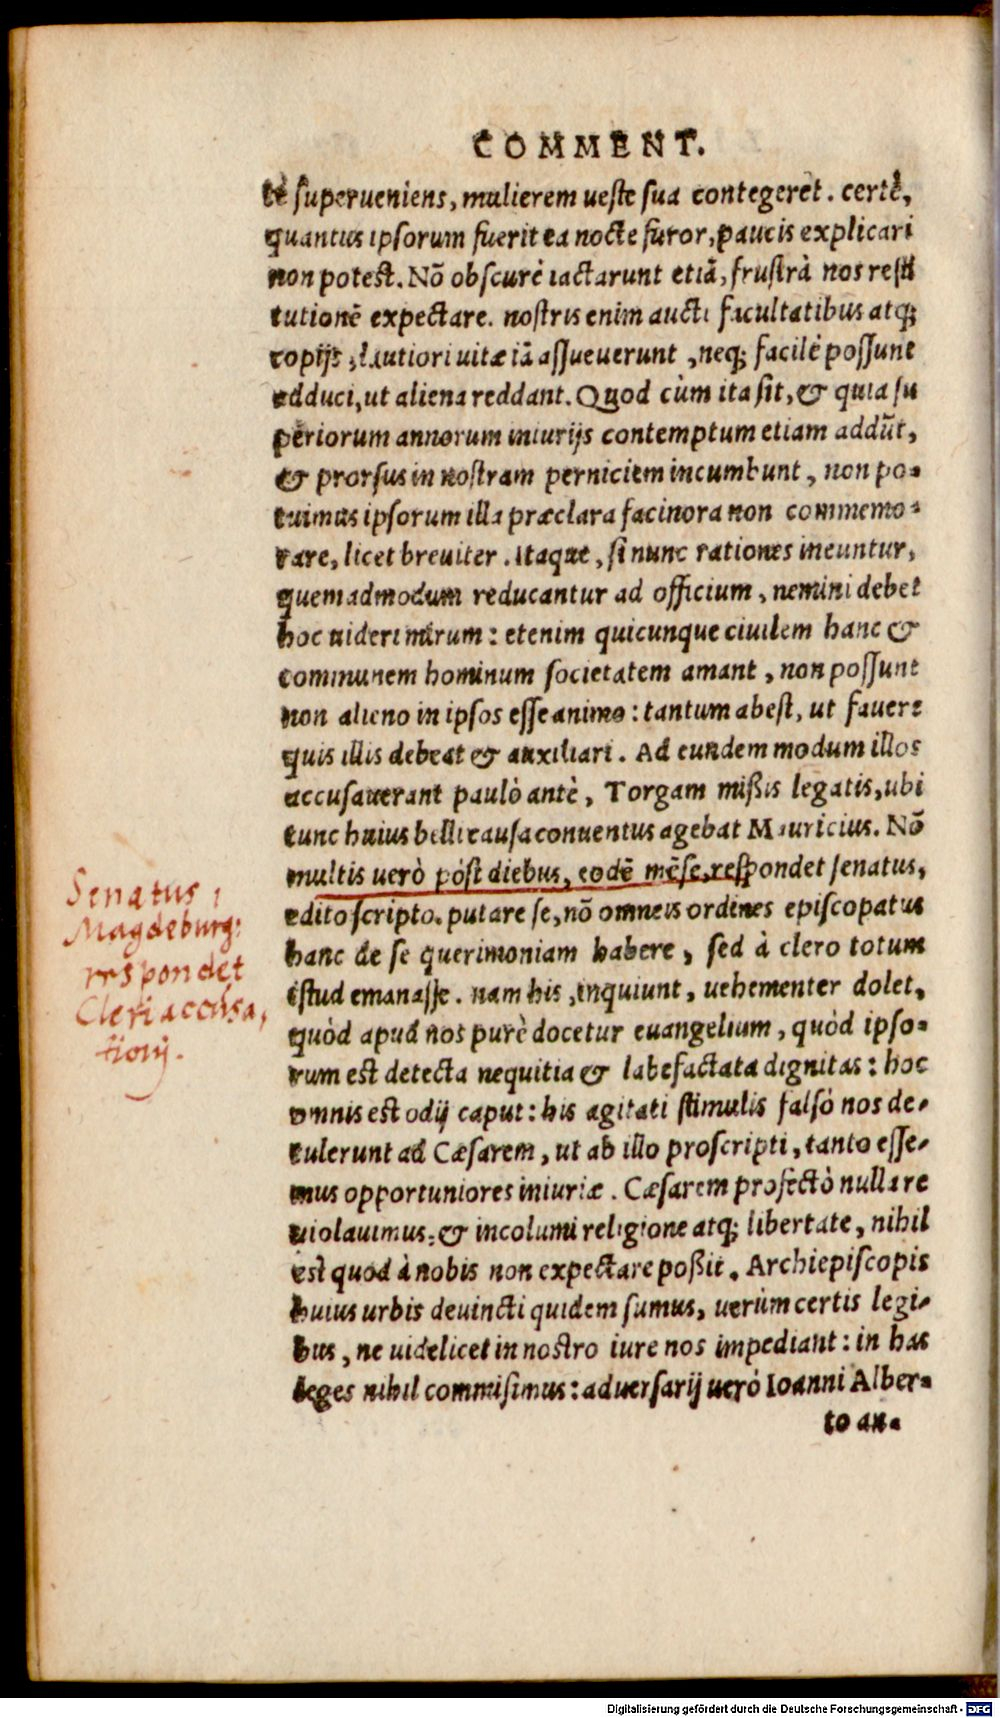 COMMENT.
tè superueniens, mulierem ueste sua contegeret. certè,
quantus ipsorum fuerit ea nocte furor, paucis explicari
non potest. Nō obscurè iactarunt etiā, frustrà nos resti
tutionē expectare. nostris enim aucti facultatibus atq;
copijs, lautiori uitæ iā assueuerunt, neq; facilè possunt
adduci, ut aliena reddant. Quod cùm ita sit, & quia su
periorum annorum iniurijs contemptum etiam addūt,
& prorsus in nostram perniciem incumbunt, non po-
tuimus ipsorum illa præclara facinora non commemo-
rare, licet breuiter. Itaque, si nunc rationes ineuntur,
quemadmodum reducantur ad officium, nemini debet
hoc uideri mirum: etenim quicunque ciuilem hanc &
communem hominum societatem amant, non possunt
non alieno in ipsos esse animo: tantum abest, ut fauere
quis illis debeat & auxiliari. Ad eundem modum illos
accusauerant paulò antè, Torgam mißis legatis, ubi
tunc huius belli causa conuentus agebat Mauricius. Nō
multis uerò pòst diebus, eodē mēse, respondet senatus,
edito scripto. putare se, nō omneis ordines episcopatus
hanc de se querimoniam habere, sed à clero totum
istud emanasse. nam his, inquiunt, uehementer dolet,
quòd apud nos purè docetur euangelium, quòd ipso-
rum est detecta nequitia & labefactata dignitas: hoc
omnis est odij caput: his agitati stimulis falsò nos de-
tulerunt ad Cæsarem, ut ab illo proscripti, tanto esse-
mus opportuniores iniuriæ. Cæsarem profectò nulla re
uiolauimus: & incolumi religione atq; libertate, nihil
est quod à nobis non expectare poßit. Archiepiscopis
huius urbis deuincti quidem sumus, uerùm certis legi-
bus, ne uidelicet in nostro iure nos impediant: in has
leges nihil commisimus: aduersarij uerò Ioanni Alber-
to an-
Senatus
Magdeburg:
respondet
Cleri accusa,
tionj.
Digitalisierung gefördert durch die Deutsche Forschungsgemeinschaft - DFG